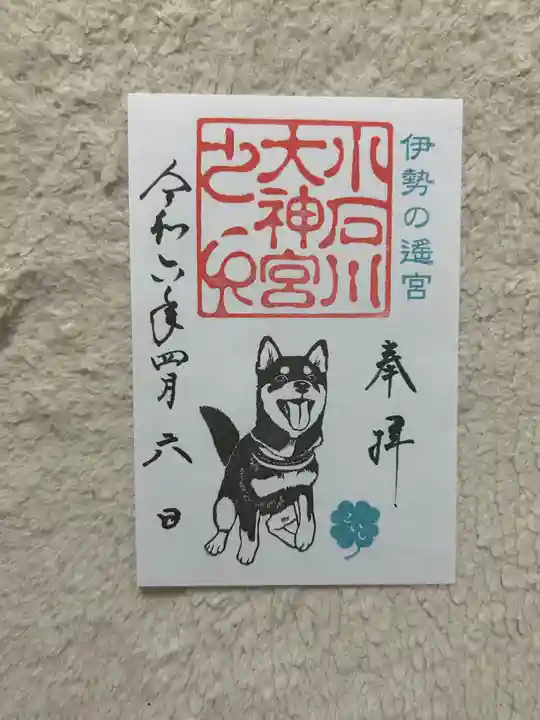 伊勢の遥宮
奉拝
小石川
大神宮
令和六年四月六日
こいし